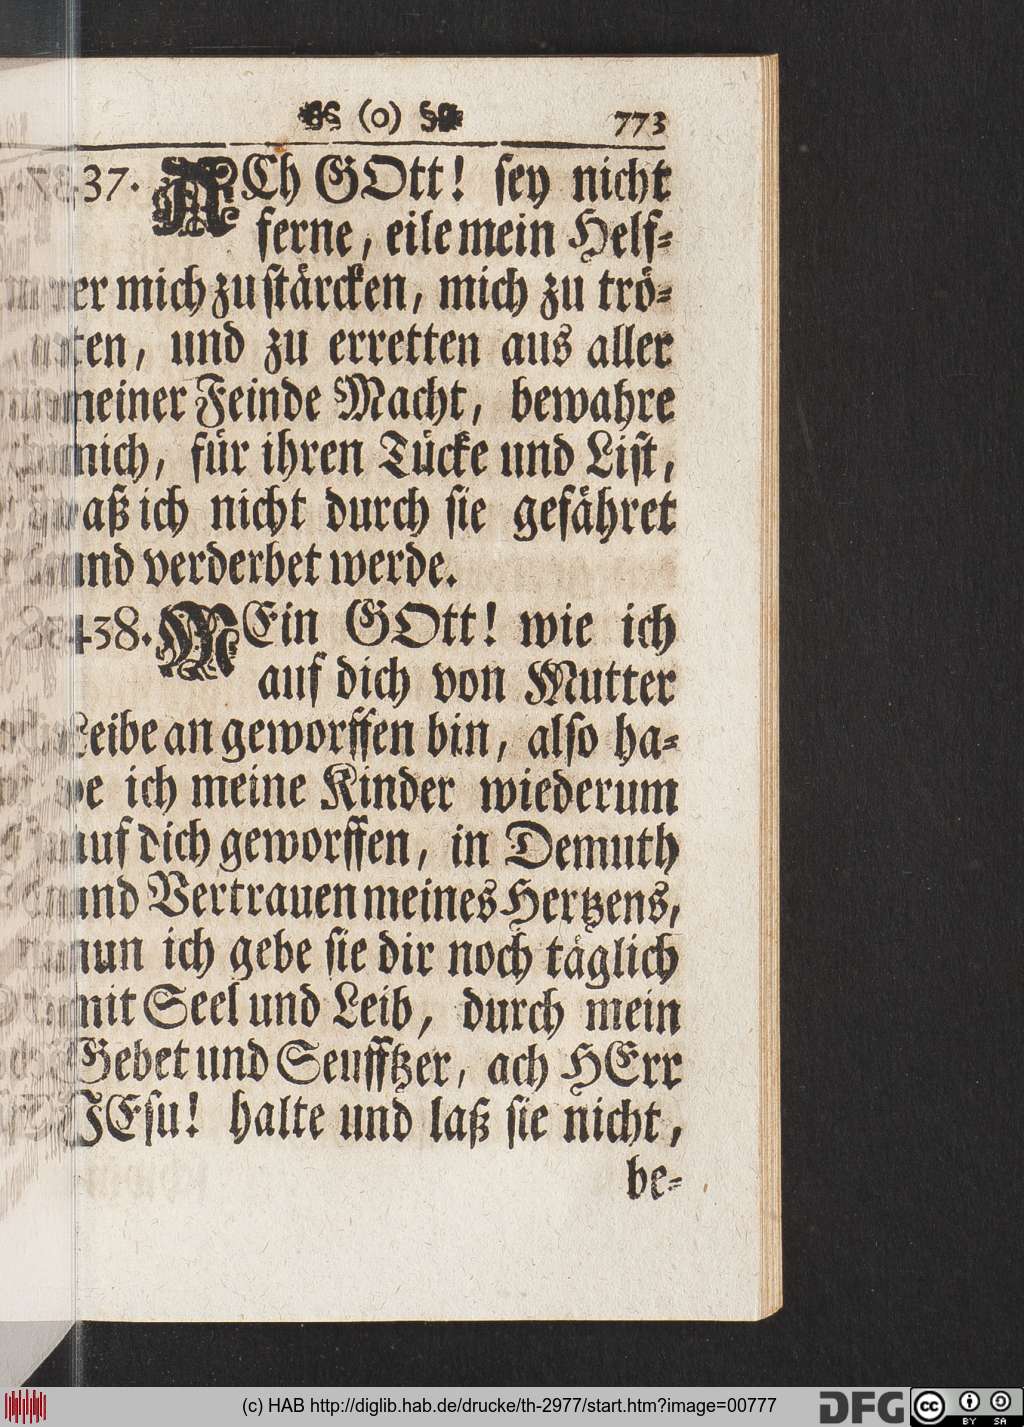 (o) 773
37. ACh GOtt! sey nicht
ferne, eile mein Helf⸗
er mich zu stärcken, mich zu trö⸗
ten, und zu erretten aus aller
meiner Feinde Macht, bewahre
mich, für ihren Tücke und List,
aß ich nicht durch sie gefähret
und verderbet werde.
438. MEin GOtt! wie ich
auf dich von Mutter
Leibe an geworffen bin, also ha⸗
be ich meine Kinder wiederum
auf dich geworffen, in Demuth
und Vertrauen meines Hertzens,
nun ich gebe sie dir noch täglich
mit Seel und Leib, durch mein
Gebet und Seufftzer, ach HErr
JEsu! halte und laß sie nicht,
be⸗
(c) HAB http://diglib.hab.de/drucke/th-2977/start.htm?image=00777
DFG
cc BY SA